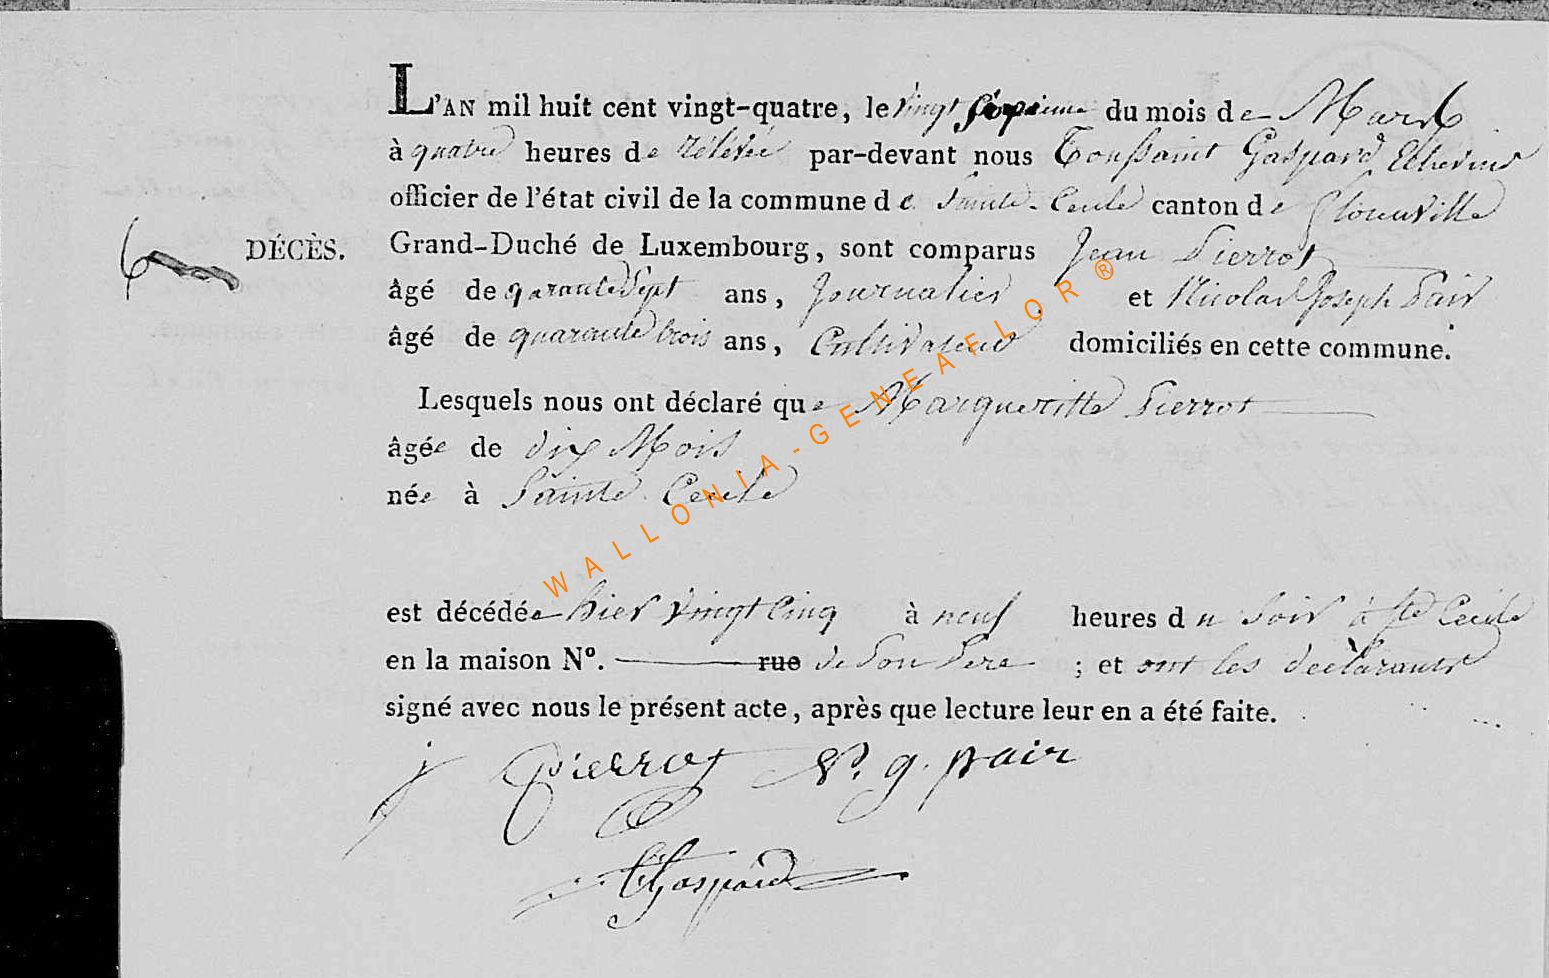 L'AN mil huit cent vingt-quatre, le vingt sixieme du mois de Mars
à quatre heures de rélévée par-devant nous Toussaint Gaspard
officier de l'état civil de la commune de Sainte-Cecile canton de
6 DÉCÈS. Grand-Duché de Luxembourg, sont comparus Jean Pierrot
âgé de quarante Sept ans, Journalier et Nicolas Joseph Pair
âgé de quarante trois ans, Cultivateur domiciliés en cette commune.
Lesquels nous ont déclaré que Margueritte Pierrot
âgée de dix Mois
née à Sainte Cecile
est décédée hier vingt Cinq à neuf heures du Soir à Ste Cecile
en la maison N°. rue de Son Pere ; et ont les déclarants
signé avec nous le présent acte, après que lecture leur en a été faite.
j pierrot N. j. pair
TGaspard
WALLONIA-GENEAFLOR®